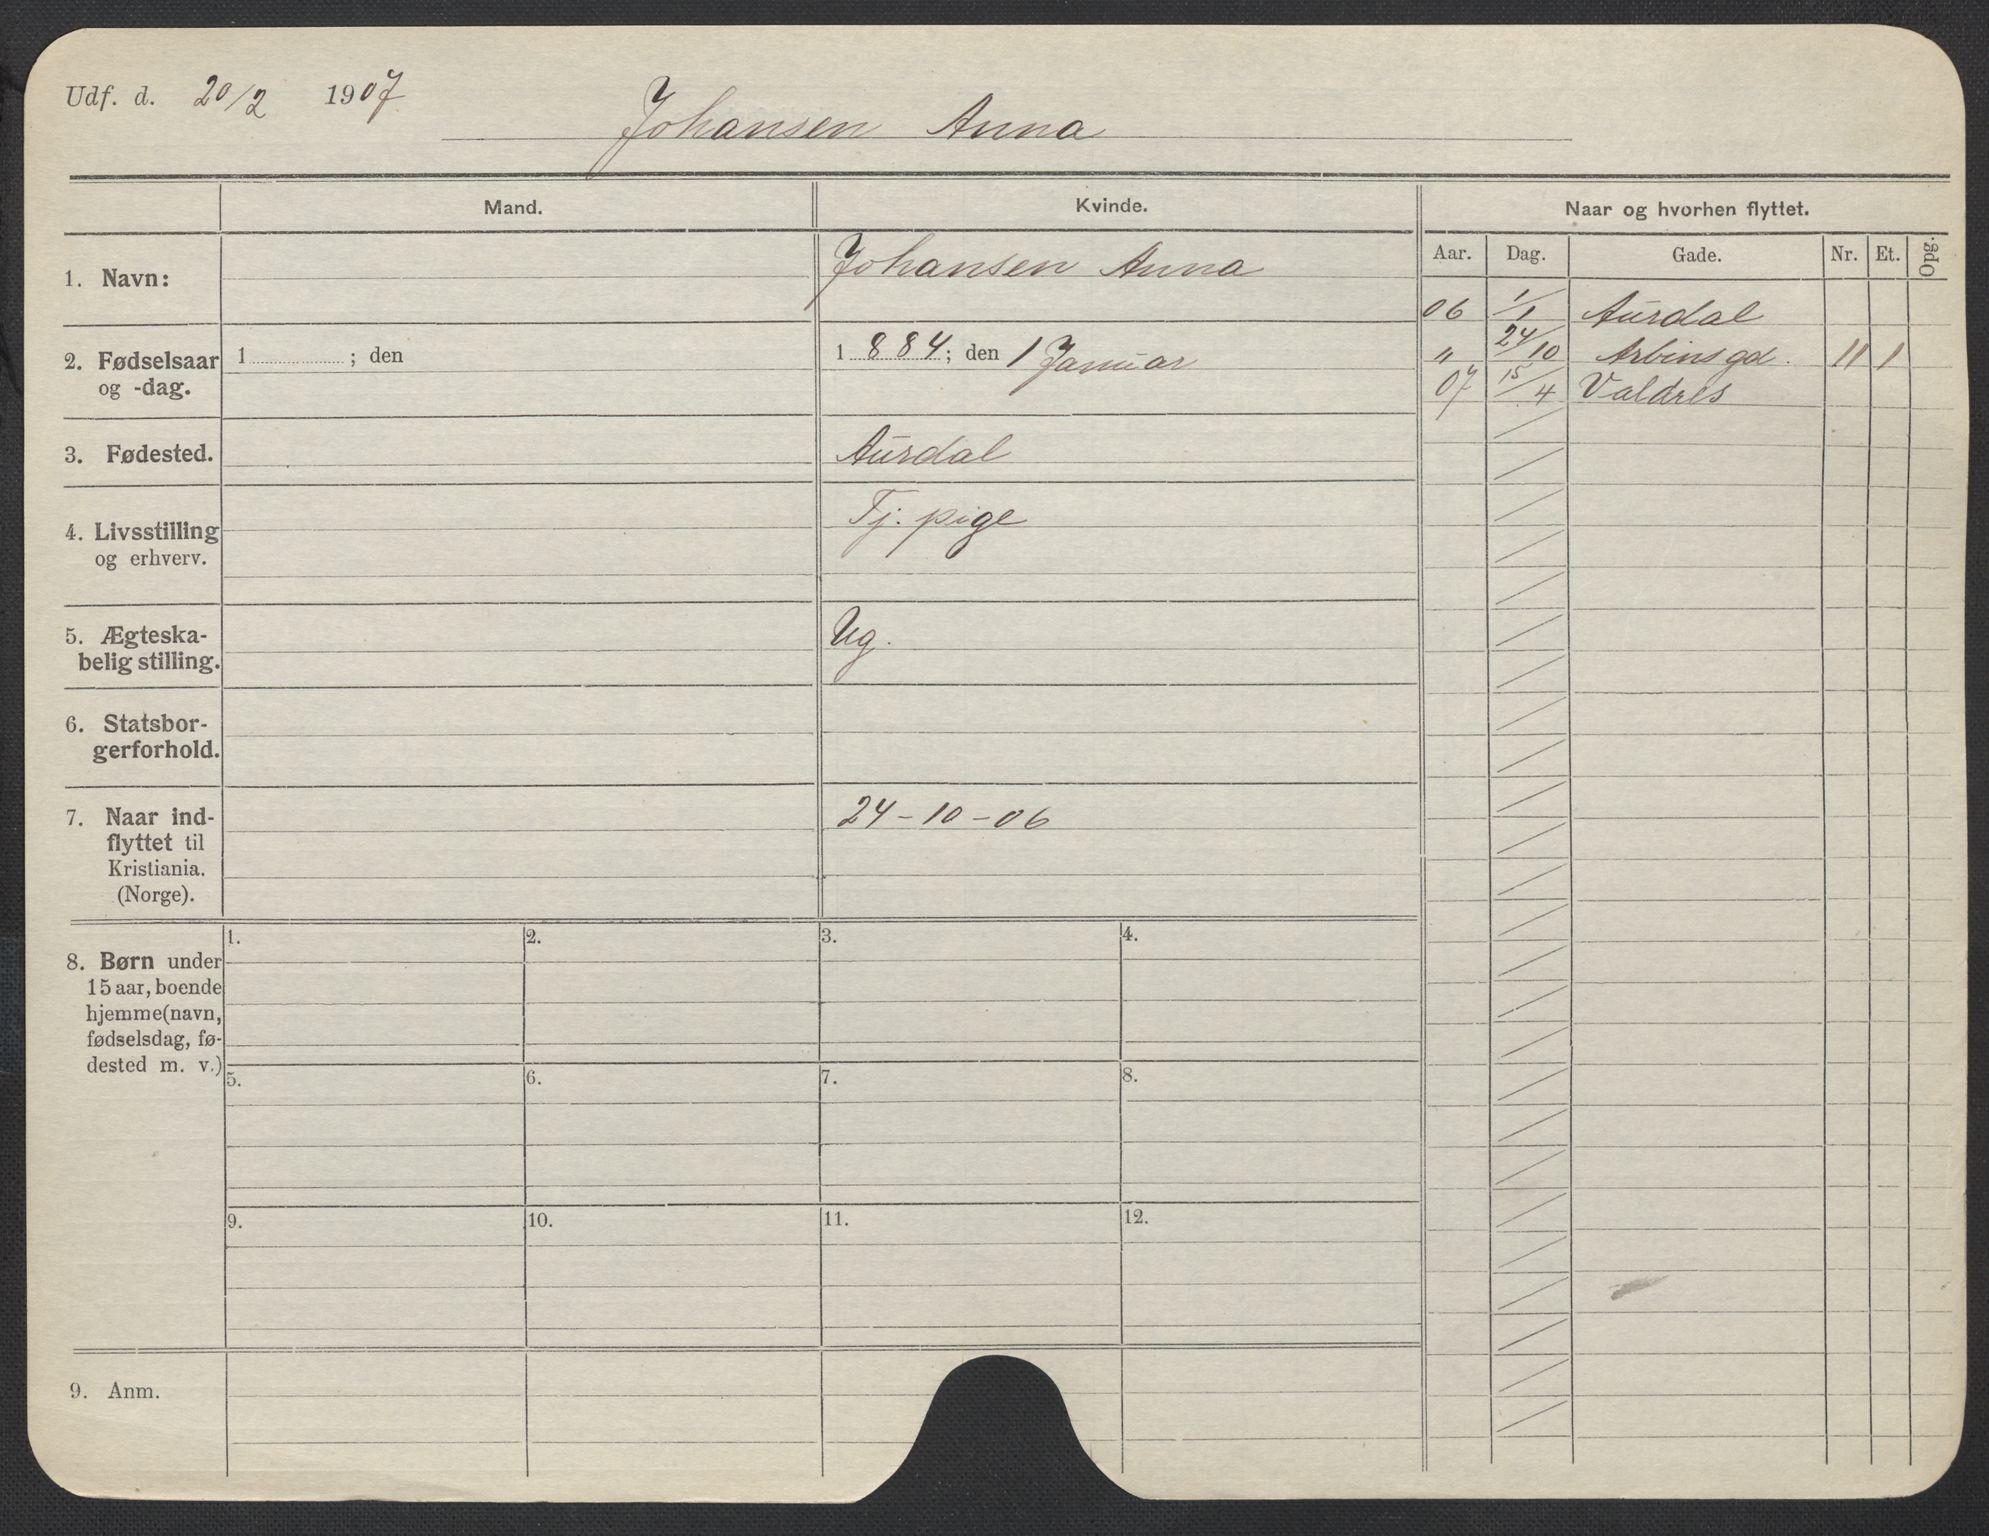 Udf. d. 20/2 1907
Johansen Anna
Mand.
Kvinde.
Naar og hvorhen flyttet.
Aar. Dag. Gade. Nr. Et. Opg.
1. Navn:
Johansen Anna
06 1/1 Aurdal
" 24/10 Arbinsgd. 11 1
07 15/4 Valdres
2. Fødselsaar
og -dag.
1 ; den
1884; den 1 Januar
3. Fødested.
Aurdal
4. Livsstilling
og erhverv.
Tj. pige
5. Ægteska-
belig stilling.
Ug.
6. Statsbor-
gerforhold.
7. Naar ind-
flyttet til
Kristiania.
(Norge).
24-10-06
8. Børn under
15 aar, boende
hjemme (navn,
fødselsdag, fø-
dested m. v.)
1. 2. 3. 4.
5. 6. 7. 8.
9. 10. 11. 12.
9. Anm.